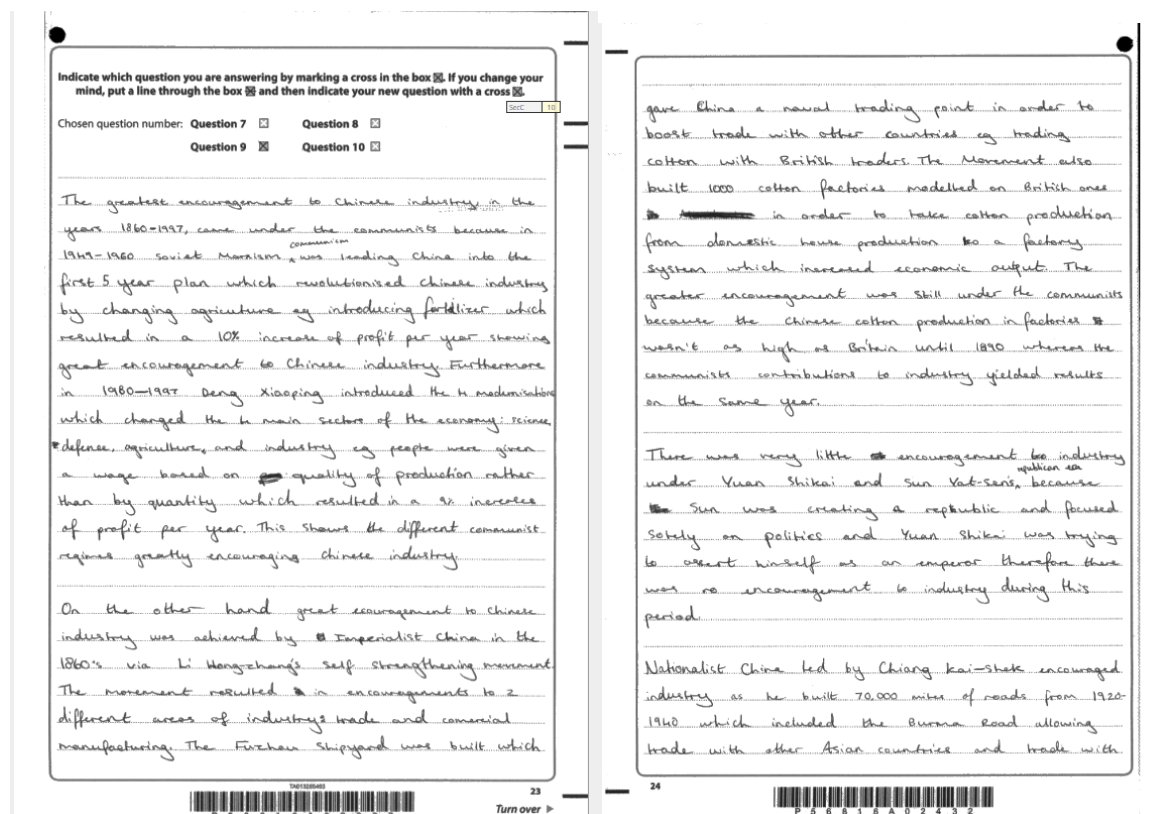 Indicate which question you are answering by marking a cross in the box ☒. If you change your
mind, put a line through the box and then indicate your new question with a cross ☒.
SecC 10
Chosen question number: Question 7 ☒ Question 8 ☒
Question 9 ☒ Question 10 ☒
The greatest encouragement to Chinese industry in the
years 1860-1997, came under the communists because in
1949-1960 soviet Marxism communism was leading China into the
first 5 year plan which revolutionised Chinese industry
by changing agriculture eg introducing fertilizer which
resulted in a 10% increase of profit per year showing
great encouragement to Chinese industry. Furthermore
in 1980-1997 Deng Xiaoping introduced the 4 modernisations
which changed the 4 main sectors of the economy: science,
defense, agriculture, and industry eg people were given
a wage based on quality of production rather
than by quantity which resulted in a 9% increase
of profit per year. This shows the different communist
regimes greatly encouraging Chinese industry.
On the other hand great ecouragement to Chinese
industry was achieved by Imperialist China in the
1860's via Li Hongzhang's self strengthening movement.
The movement resulted in encouragements to 2
different areas of industrys trade and comercial
manufacturing. The Fuzhou Shipyard was built which
TA013265493
23
Turn over
gave China a naval trading point in order to
boost trade with other countries eg trading
cotton with British traders. The Movement also
built 1000 cotton factories modelled on British ones
in order to take cotton production
from domestic house production to a factory
system which increased economic output. The
greater encouragement was still under the communists
because the Chinese cotton production in factories
wasn't as high as Britain until 1890 whereas the
communists contributions to industry yielded results
on the same year.
There was very little encouragement to industry
under Yuan Shikai and Sun Yat-sen's republican era because
Sun was creating a republic and focused
solely on politics and Yuan Shikai was trying
to assert himself as an emperor therefore there
was no encouragement to industry during this
period.
Nationalist China led by Chiang Kai-shek encouraged
industry as he built 70,000 miles of roads from 1920-
1940 which included the Burma Road allowing
trade with other Asian countries and trade with
24
P56816A02432